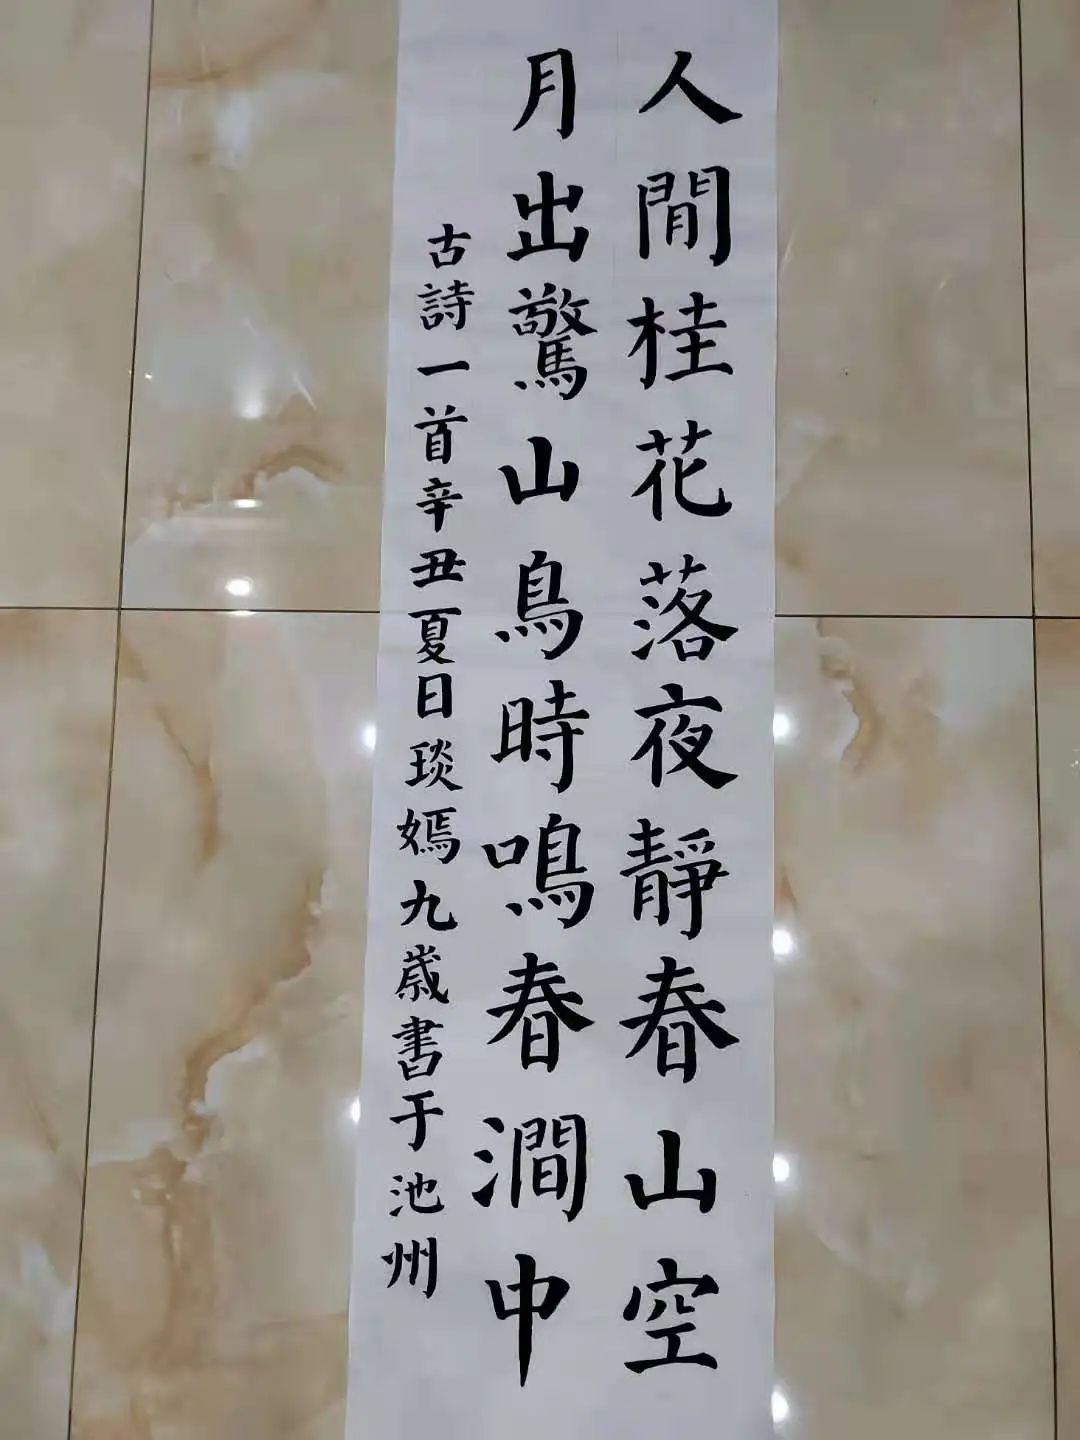 人閒桂花落夜靜春山空
月出驚山鳥時鳴春澗中
古詩一首辛丑夏日琰嫣九歲書于池州